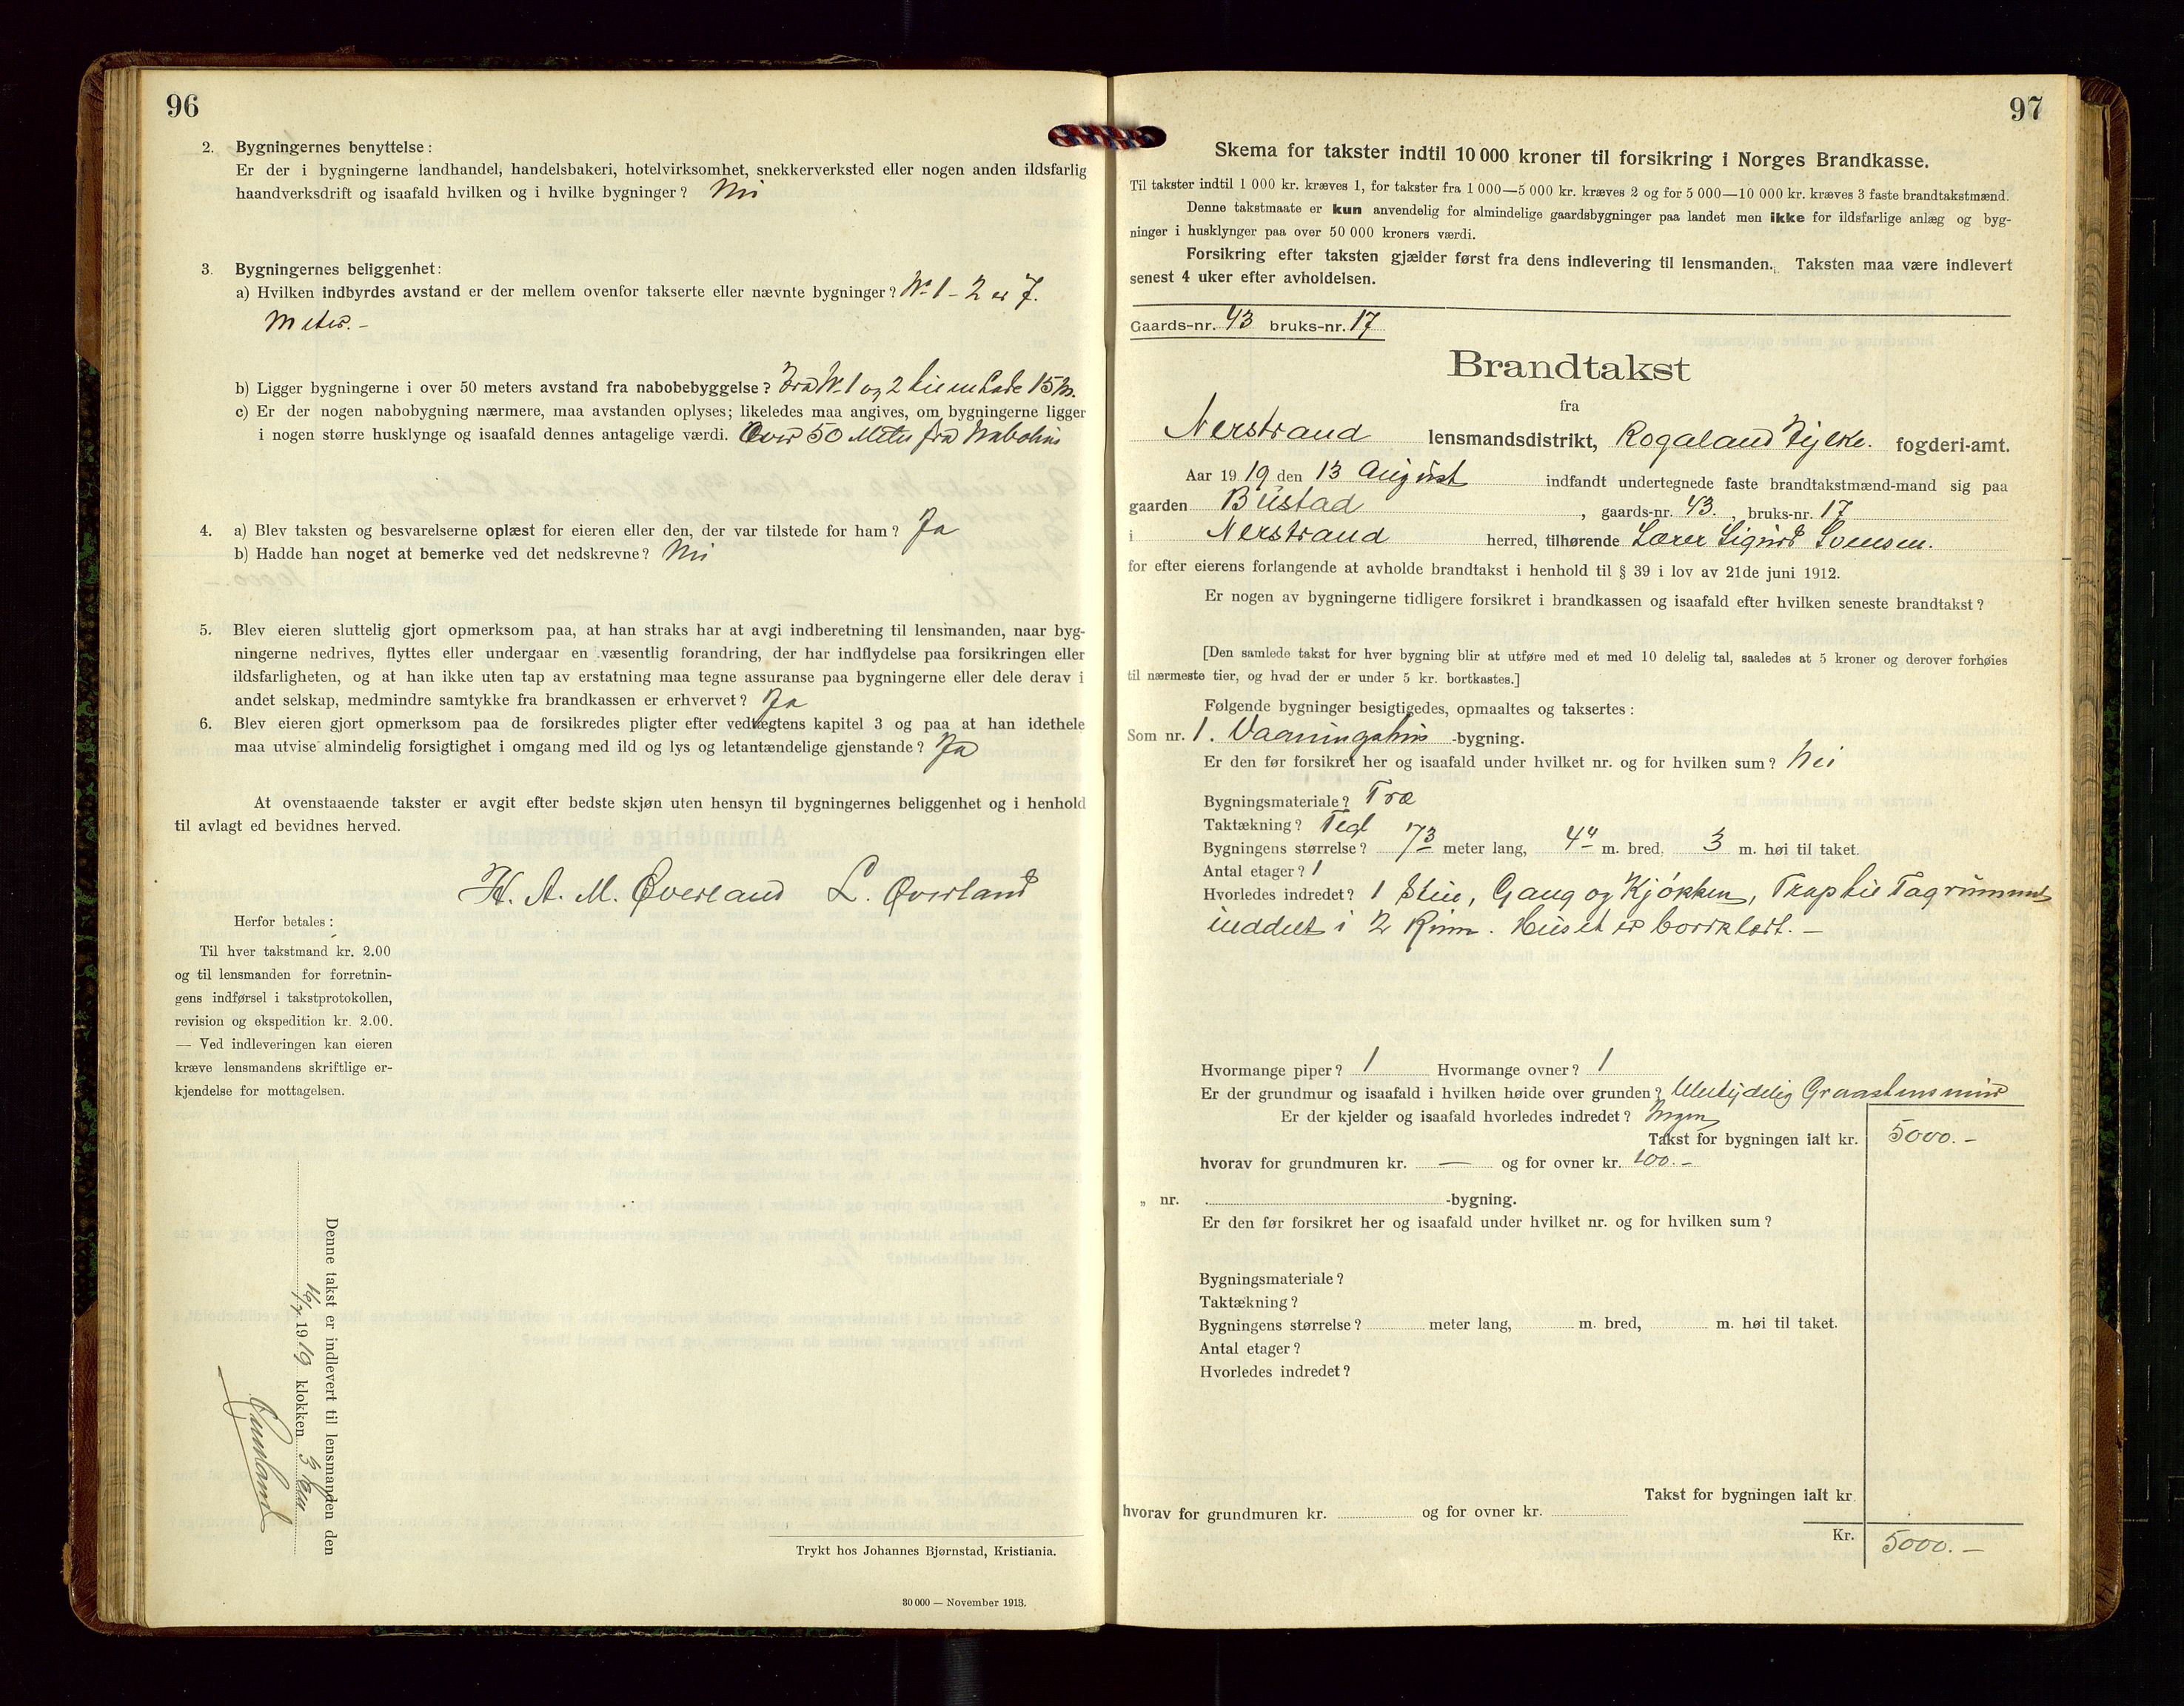 96
2. Bygningernes benyttelse:
Er der i bygningerne landhandel, handelsbakeri, hotelvirksomhet, snekkerverksted eller nogen anden ildsfarlig
haandverksdrift og isaafald hvilken og i hvilke bygninger? Nei
3. Bygningernes beliggenhet:
a) Hvilken indbyrdes avstand er der mellem ovenfor takserte eller nævnte bygninger? No 1 - 2 er 7.
Meter. -
b) Ligger bygningerne i over 50 meters avstand fra nabobebyggelse? Fra No 1 og 2 til en Lade 15 M.
c) Er der nogen nabobygning nærmere, maa avstanden oplyses; likeledes maa angives, om bygningerne ligger
i nogen større husklynge og isaafald dennes antagelige værdi. Over 50 Meter fra Nabohus
4. a) Blev taksten og besvarelserne oplæst for eieren eller den, der var tilstede for ham? Ja
b) Hadde han noget at bemerke ved det nedskrevne? Nei
5. Blev eieren sluttelig gjort opmerksom paa, at han straks har at avgi indberetning til lensmanden, naar byg-
ningerne nedrives, flyttes eller undergaar en væsentlig forandring, der har indflydelse paa forsikringen eller
ildsfarligheten, og at han ikke uten tap av erstatning maa tegne assuranse paa bygningerne eller dele derav i
andet selskap, medmindre samtykke fra brandkassen er erhvervet? Ja
6. Blev eieren gjort opmerksom paa de forsikredes pligter efter vedtægtens kapitel 3 og paa at han idethele
maa utvise almindelig forsigtighet i omgang med ild og lys og letantændelige gjenstande? Ja
At ovenstaaende takster er avgit efter bedste skjøn uten hensyn til bygningernes beliggenhet og i henhold
til avlagt ed bevidnes herved.
H. A. M. Øverland L. Øverland
Herfor betales:
Til hver takstmand kr. 2.00
og til lensmanden for forretnin-
gens indførsel i takstprotokollen,
revision og ekspedition kr. 2.00.
— Ved indleveringen kan eieren
kræve lensmandens skriftlige er-
kjendelse for mottagelsen.
Denne takst er indlevert til lensmanden den
1919 klokken 3
Trykt hos Johannes Bjørnstad, Kristiania.
30 000 — November 1913.
97
Skema for takster indtil 10 000 kroner til forsikring i Norges Brandkasse.
Til takster indtil 1 000 kr. kræves 1, for takster fra 1 000—5 000 kr. kræves 2 og for 5 000—10 000 kr. kræves 3 faste brandtakstmænd.
Denne takstmaate er kun anvendelig for almindelige gaardsbygninger paa landet men ikke for ildsfarlige anlæg og byg-
ninger i husklynger paa over 50 000 kroners værdi.
Forsikring efter taksten gjælder først fra dens indlevering til lensmanden. Taksten maa være indlevert
senest 4 uker efter avholdelsen.
Gaards-nr. 43 bruks-nr. 17
Brandtakst
fra
Nerstrand lensmandsdistrikt, Rogaland Fylke. fogderi-amt.
Aar 1919 den 13 August indfandt undertegnede faste brandtakstmænd-mand sig paa
gaarden Bustad, gaards-nr. 43., bruks-nr. 17
i Nerstrand herred, tilhørende Lærer Sigurd Svensen.
for efter eierens forlangende at avholde brandtakst i henhold til § 39 i lov av 21de juni 1912.
Er nogen av bygningerne tidligere forsikret i brandkassen og isaafald efter hvilken seneste brandtakst?
[Den samlede takst for hver bygning blir at utføre med et med 10 delelig tal, saaledes at 5 kroner og derover forhøies
til nærmeste tier, og hvad der er under 5 kr. bortkastes.]
Følgende bygninger besigtigedes, opmaaltes og taksertes:
Som nr. 1. Vaaningshus -bygning.
Er den før forsikret her og isaafald under hvilket nr. og for hvilken sum? Nei
Bygningsmateriale? Træ
Taktækning? Tegl
Bygningens størrelse? 7 3 meter lang, 4 4 m. bred, 3 m. høi til taket.
Antal etager? 1
Hvorledes indredet? 1 Stue, Gang og Kjøkken, Trap til Tagrummet
inddelt i 2 Rum. Huset er bordklædt. -
Hvormange piper? 1 Hvormange ovner? 1
Er der grundmur og isaafald i hvilken høide over grunden? Ubetydelig Graastensmur
Er der kjelder og isaafald hvorledes indredet? Ingen
Takst for bygningen ialt kr. 5000. -
hvorav for grundmuren kr. — og for ovner kr. 100. -
„ nr. -bygning.
Er den før forsikret her og isaafald under hvilket nr. og for hvilken sum?
Bygningsmateriale?
Taktækning?
Bygningens størrelse? meter lang, m. bred, m. høi til taket.
Antal etager?
Hvorledes indredet?
Takst for bygningen ialt kr.
hvorav for grundmuren kr. og for ovner kr.
Kr. 5000. -